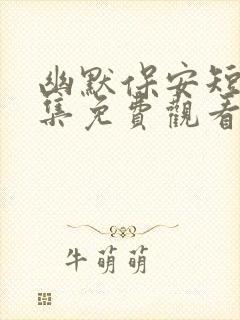 幽默保安短
集免費觀看
牛萌萌